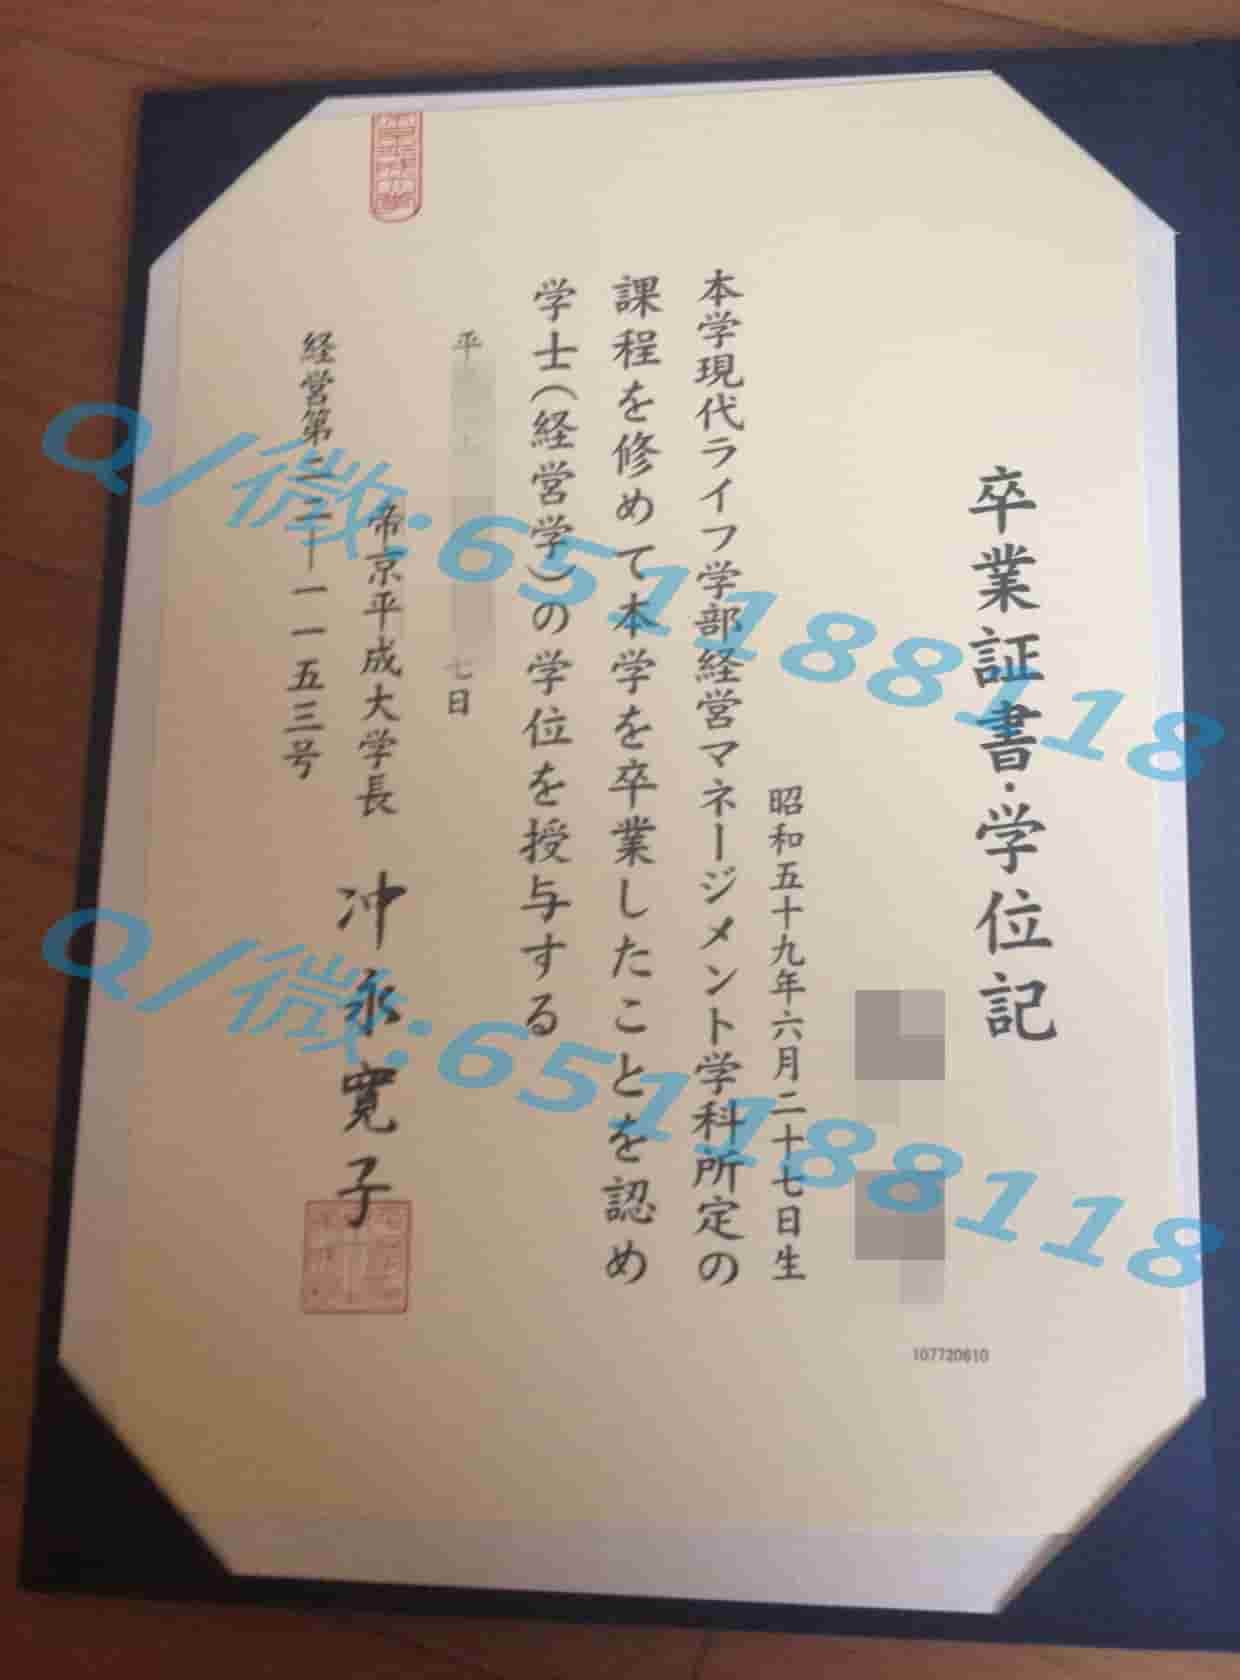 卒業証書・学位記
昭和五十九年六月二十七日生
本学現代ライフ学部経営マネージメント学科所定の
課程を修めて本学を卒業したことを認め
学士(経営学)の学位を授与する
平
七日
帝京平成大学長 冲永寛子
経営第二二ー一一五三号
107720610
Q/微:651188118
Q/微:651188118